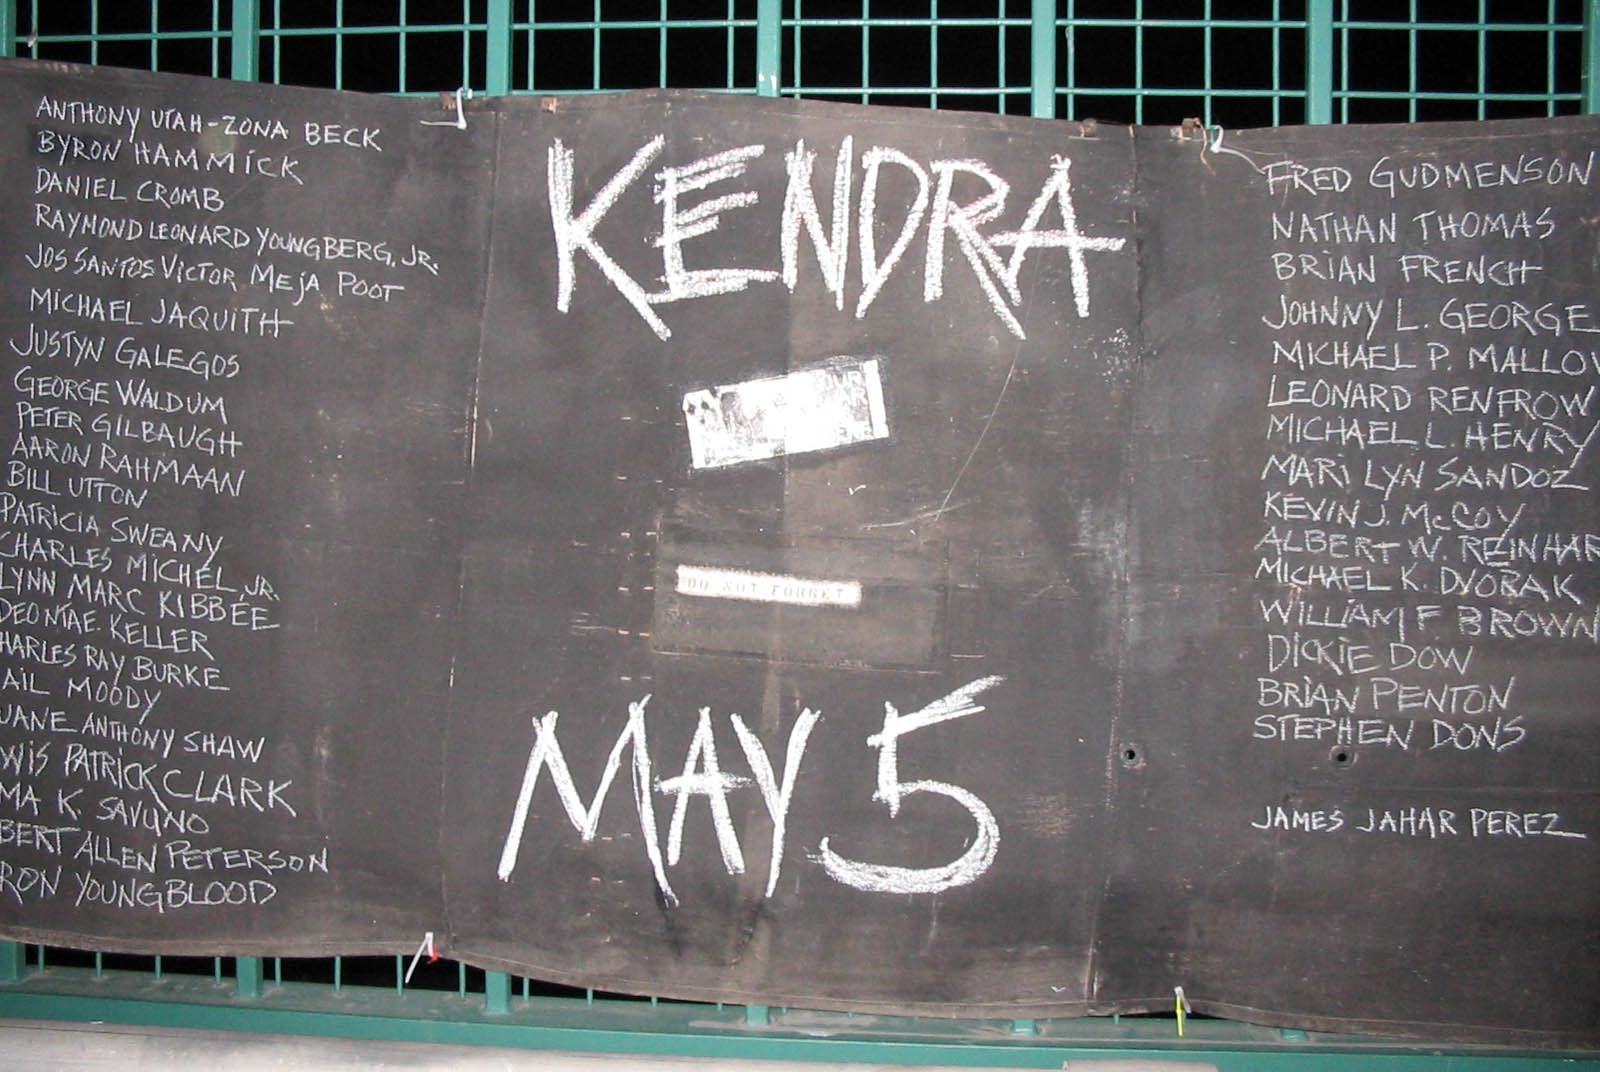 ANTHONY UTAH-ZONA BECK
BYRON HAMMICK
DANIEL CROMB
RAYMOND LEONARD YOUNGBERG, JR.
JOS SANTOS VICTOR MEJA POOT
MICHAEL JAQUITH
JUSTYN GALEGOS
GEORGE WALDUM
PETER GILBAUGH
AARON RAHMAAN
BILL UTTON
PATRICIA SWEANY
CHARLES MICHEL, JR.
LYNN MARC KIBBEE
DEOMAE KELLER
HARLES RAY BURKE
AIL MOODY
UANE ANTHONY SHAW
WIS PATRICK CLARK
MA K. SAVUNO
BERT ALLEN PETERSON
RON YOUNGBLOOD
KENDRA
DO NOT FORGET
MAY 5
FRED GUDMENSON
NATHAN THOMAS
BRIAN FRENCH
JOHNNY L. GEORGE
MICHAEL P. MALLOV
LEONARD RENFROW
MICHAEL L. HENRY
MARI LYN SANDOZ
KEVIN J. McCOY
ALBERT W. REINHAR
MICHAEL K. DVOŘAK
WILLIAM F BROWN
DICKIE DOW
BRIAN PENTON
STEPHEN DONS
JAMES JAHAR PEREZ